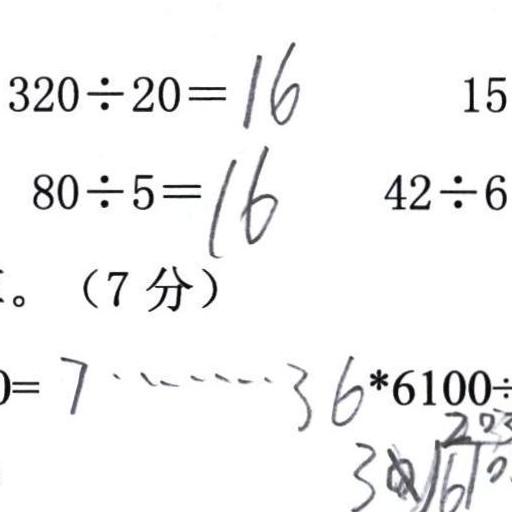 320÷20=16 15
80÷5=16 42÷6
。（7 分）
0= 7……36 *6100÷
203
30 610